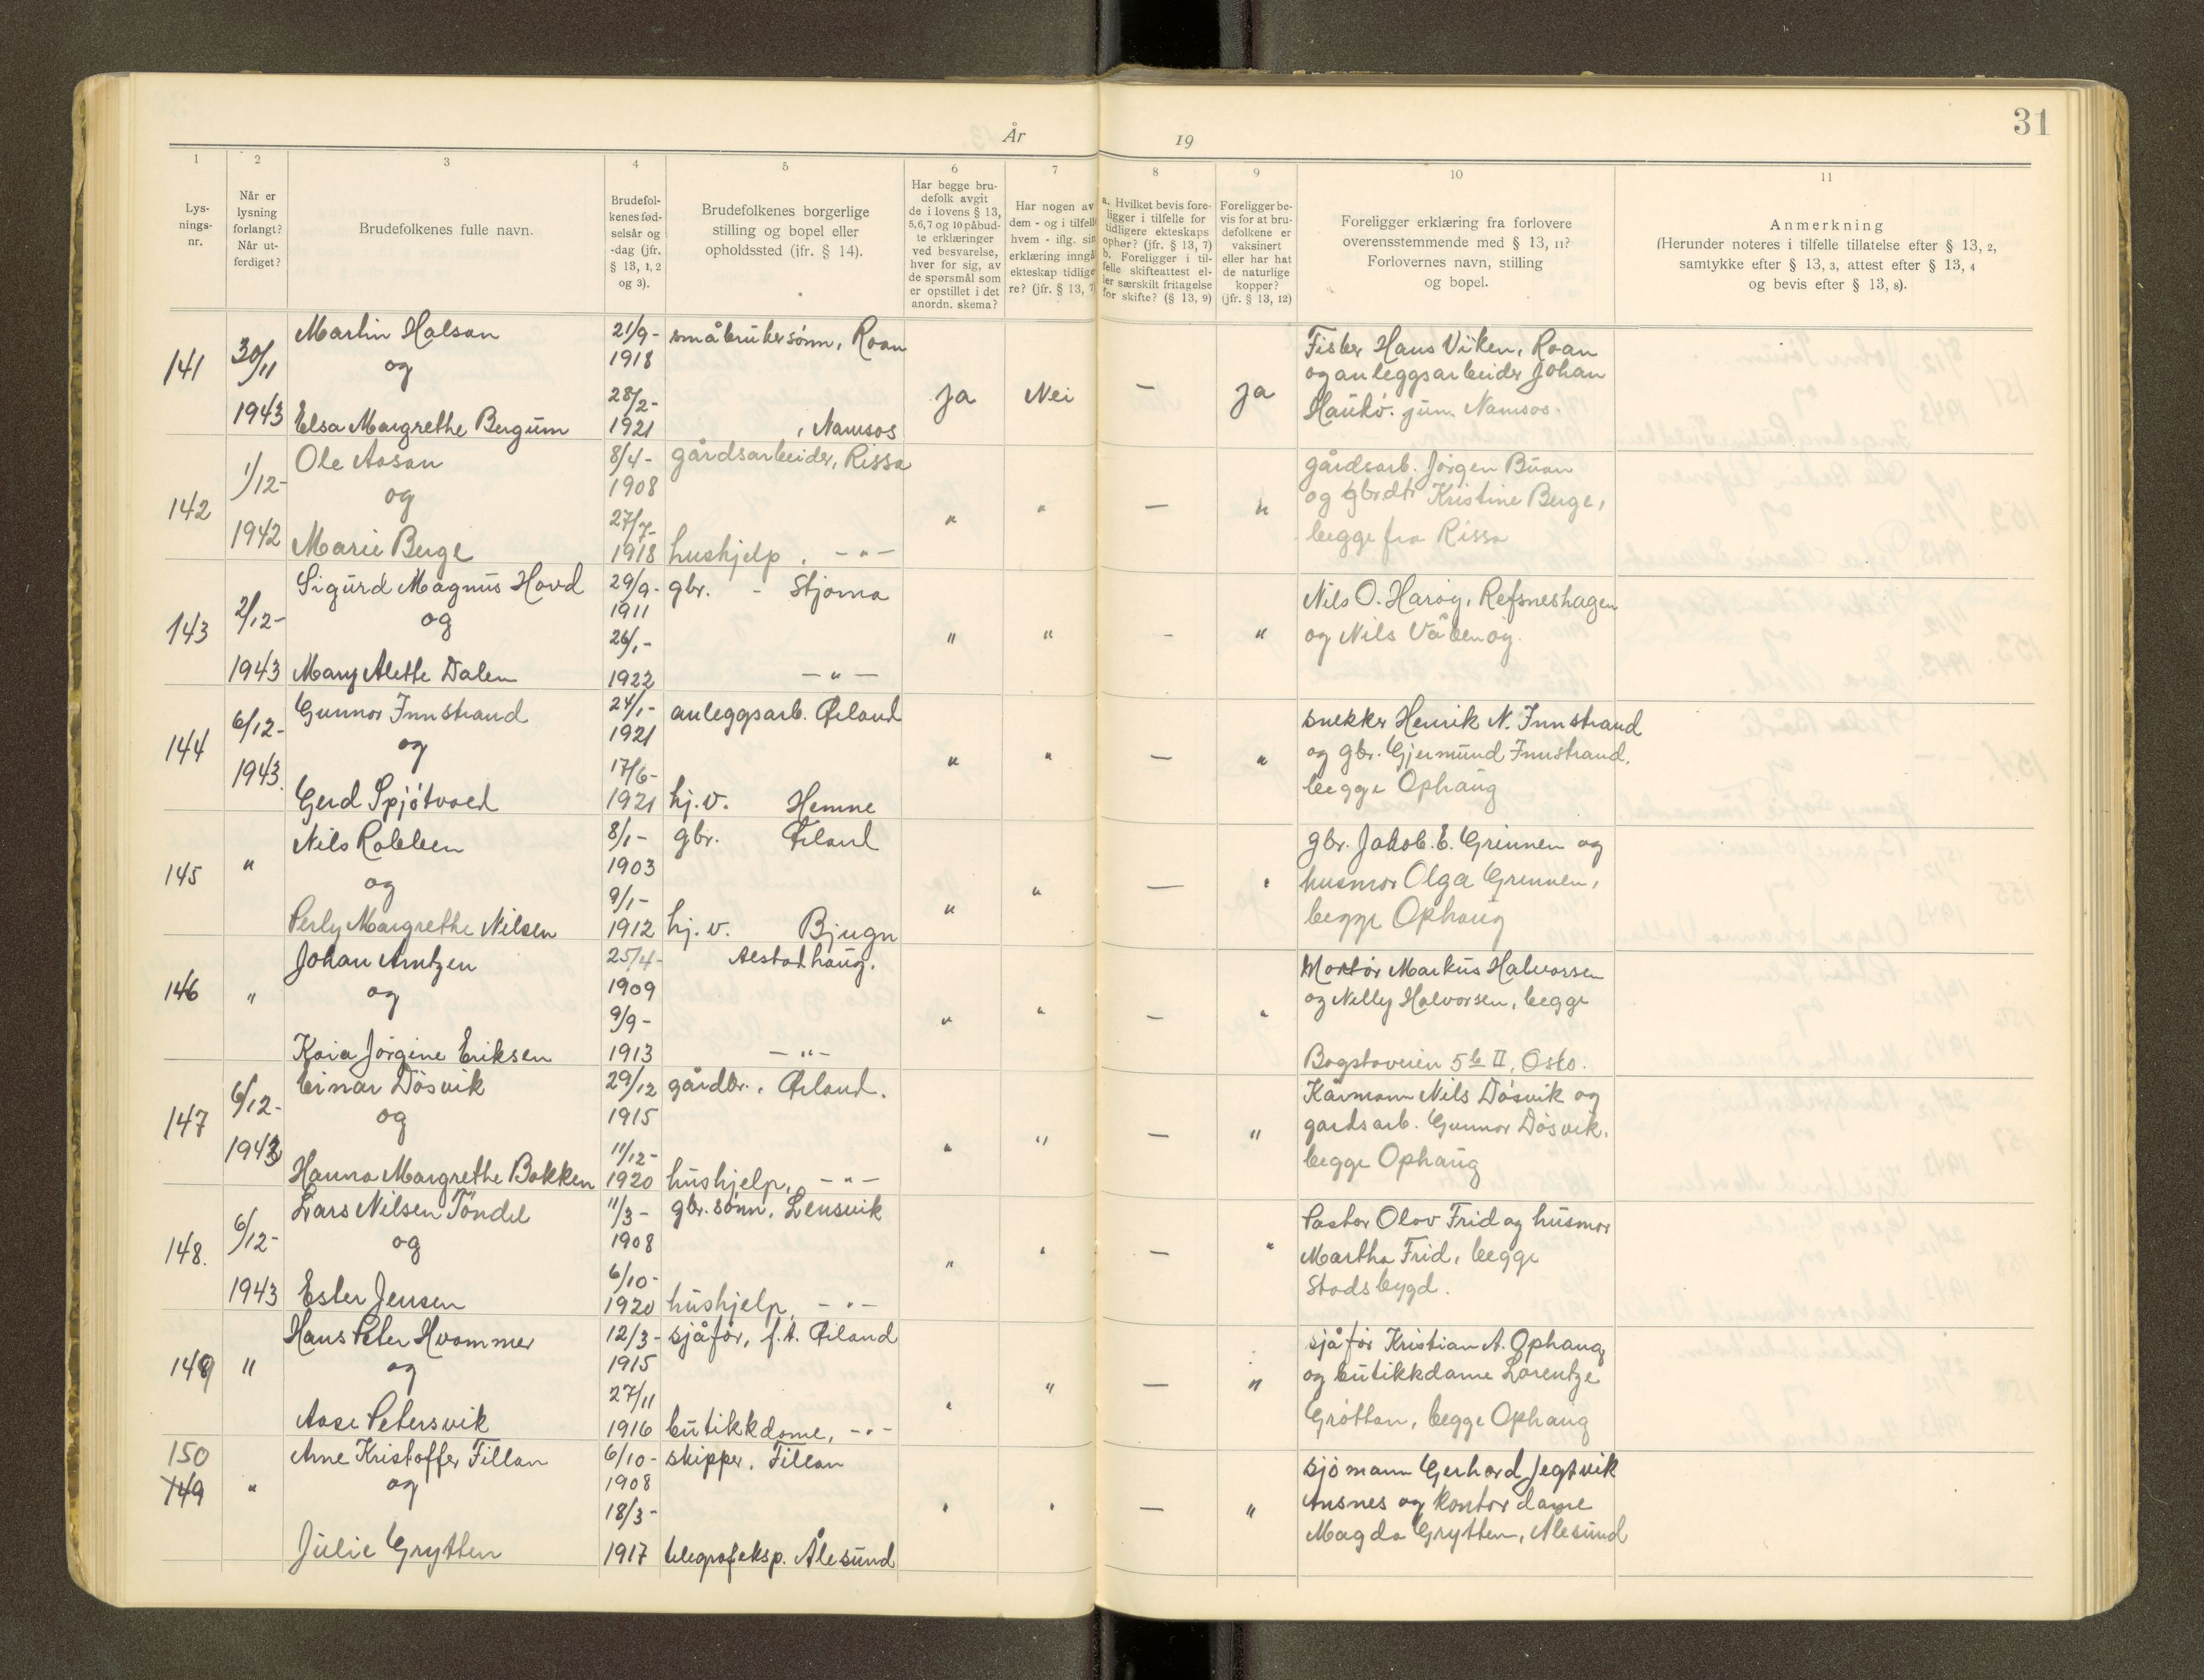 31
År 19
1 2 3 4 5 6 7 8 9 10 11
Lys-
nings-
nr.
Når er
lysning
forlangt?
Når ut-
ferdiget?
Brudefolkenes fulle navn.
Brudefol-
kenes fød-
selsår og
-dag (jfr.
§ 13, 1, 2
og 3).
Brudefolkenes borgerlige
stilling og bopel eller
opholdssted (jfr. § 14).
Har begge bru-
defolk avgit
de i lovens § 13,
5, 6, 7 og 10 påbud-
te erklæringer
ved besvarelse,
hver for sig, av
de spørsmål som
er opstillet i det
anordn. skema?
Har nogen av
dem - og i tilfell
hvem - iflg. sin
erklæring inngå
ekteskap tidlige
re? (jfr. § 13, 7)
a. Hvilket bevis fore-
ligger i tilfelle for
tidligere ekteskaps
ophør? (jfr. § 13, 7)
b. Foreligger i til-
felle skifteattest el-
ler særskilt fritagelse
for skifte? (§ 13, 9)
Foreligger be-
vis for at bru-
defolkene er
vaksinert
eller har hat
de naturlige
kopper?
(jfr. § 13, 12)
Foreligger erklæring fra forlovere
overensstemmende med § 13, 11?
Forlovernes navn, stilling
og bopel.
Anmerkning
(Herunder noteres i tilfelle tillatelse efter § 13, 2,
samtykke efter § 13, 3, attest efter § 13, 4
og bevis efter § 13, 8).
141 30/11 1943
Martin Halsan 21/9-1918 småbrukersønn, Roan
og
Elsa Margrethe Bergum 28/2-1921 , Namsos
Ja Nei — Ja
Fisker Hans Viken, Roan
og anleggsarbeider Johan
Haukø. jun. Namsos.
142 1/12-1942
Ole Aasan 8/4-1908 gårdsarbeider, Rissa
og
Marie Berge 27/7-1918 hushjelp, —"—
" " — "
gårdsarb. Jørgen Buan
og gbrdtr Kristine Berge,
begge fra Rissa
143 2/12-1943
Sigurd Magnus Hovd 29/9-1911 gbr. - Stjørna
og
Mary Alette Dalen 26/1-1922 —"—
" " — "
Nils O. Harøy, Refsneshagen
og Nils Våbenøy.
144 6/12-1943.
Gunnar Innstrand 24/1-1921 anleggsarb. Ørland
og
Gerd Spjøtvoll 17/6-1921 hj.v. Hemne
" " — "
snekker Henrik N. Innstrand
og gbr. Gjermund Innstrand.
begge Ophaug
145 "
Nils Rabben 8/1-1903 gbr. Ørland
og
Perly Margrethe Nilsen 9/1-1912 hj.v. Bjugn
" " — "
gbr. Jakob. E. Grinnen og
husmor Olga Grinnen,
begge Ophaug
146 "
Johan Arntzen 25/4-1909 Alstadhaug.
og
Kaia Jørgine Eriksen 9/9-1913 —"—
" " — "
Markus Halvorsen
og Nelly Halvorsen, begge
Bogstaveien 5b II, Oslo.
147 6/12-1943
Einar Døsvik 29/12 1915 gårdbr., Ørland.
og
Hanna Margrethe Bakken 11/12-1920 hushjelp, —"—
" " — "
Kårmann Nils Døsvik og
gardsarb. Gunnar Døsvik.
begge Ophaug
148. 6/12-1943
Lars Nilsen Tøndel 11/3-1908 gbr.sønn, Lensvik
og
Ester Jensen 6/10-1920 hushjelp, —"—
" " — "
Pastor Olav Frid og husmor
Martha Frid, begge
Stadsbygd.
149 "
Hans Peter Hvammer 12/3-1915 sjåfør, f.t. Ørland
og
Aase Petersvik 27/11 1916 butikkdame, —"—
" " — "
sjåfør Kristian A. Ophaug
og butikkdame Lorentze
Grøttan, begge Ophaug
150
149 "
Arne Kristoffer Fillan 6/10-1908 skipper, Fillan
og
Julie Grytten 18/3-1917 telegrafeksp. Ålesund
" " — "
sjømann Gerhard Jegtvik
Ansnes og kontordame
Magda Grytten, Ålesund